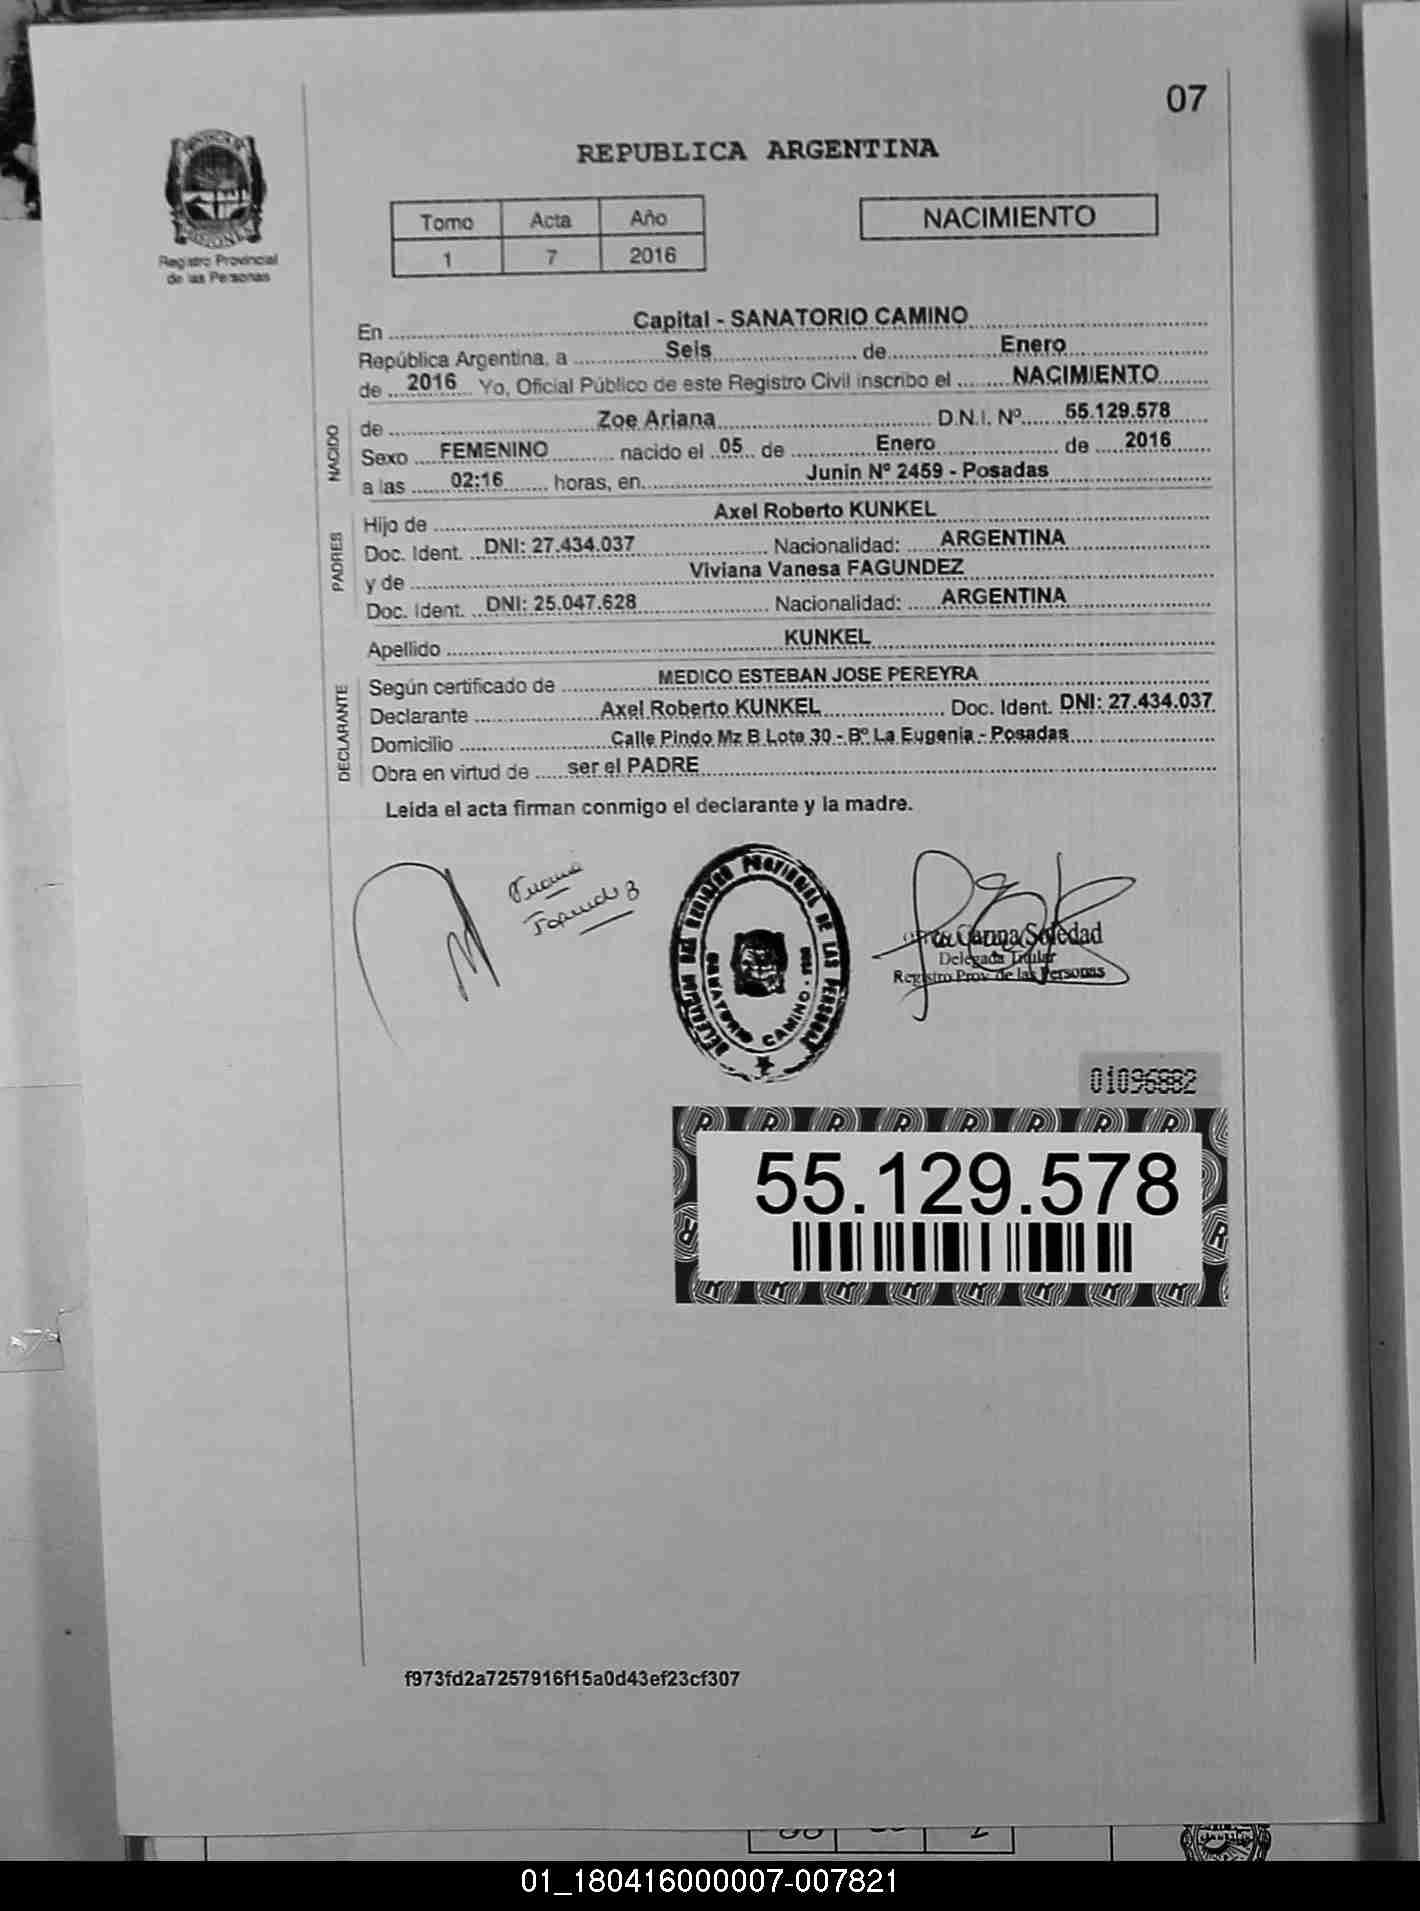 07
REPUBLICA ARGENTINA
Registro Provincial
de las Personas
Tomo Acta Año
1 7 2016
NACIMIENTO
En Capital - SANATORIO CAMINO
República Argentina, a Seis de Enero
de 2016 Yo, Oficial Público de este Registro Civil inscribo el NACIMIENTO
NACIDO
de Zoe Ariana D.N.I. Nº 55.129.578
Sexo FEMENINO nacido el 05 de Enero de 2016
a las 02:16 horas, en Junin Nº 2459 - Posadas
PADRES
Hijo de Axel Roberto KUNKEL
Doc. Ident. DNI: 27.434.037 Nacionalidad: ARGENTINA
y de Viviana Vanesa FAGUNDEZ
Doc. Ident. DNI: 25.047.628 Nacionalidad: ARGENTINA
Apellido KUNKEL
DECLARANTE
Según certificado de MEDICO ESTEBAN JOSE PEREYRA
Declarante Axel Roberto KUNKEL Doc. Ident. DNI: 27.434.037
Domicilio Calle Pindo Mz B Lote 30 - Bº La Eugenia - Posadas
Obra en virtud de ser el PADRE
Leida el acta firman conmigo el declarante y la madre.
PROVINCIAL DE LAS PERSONAS
SANATORIO CAMINO
Soledad
Delegada Titular
Registro Prov. de las Personas
01096882
55.129.578
f973fd2a7257916f15a0d43ef23cf307
01_180416000007-007821